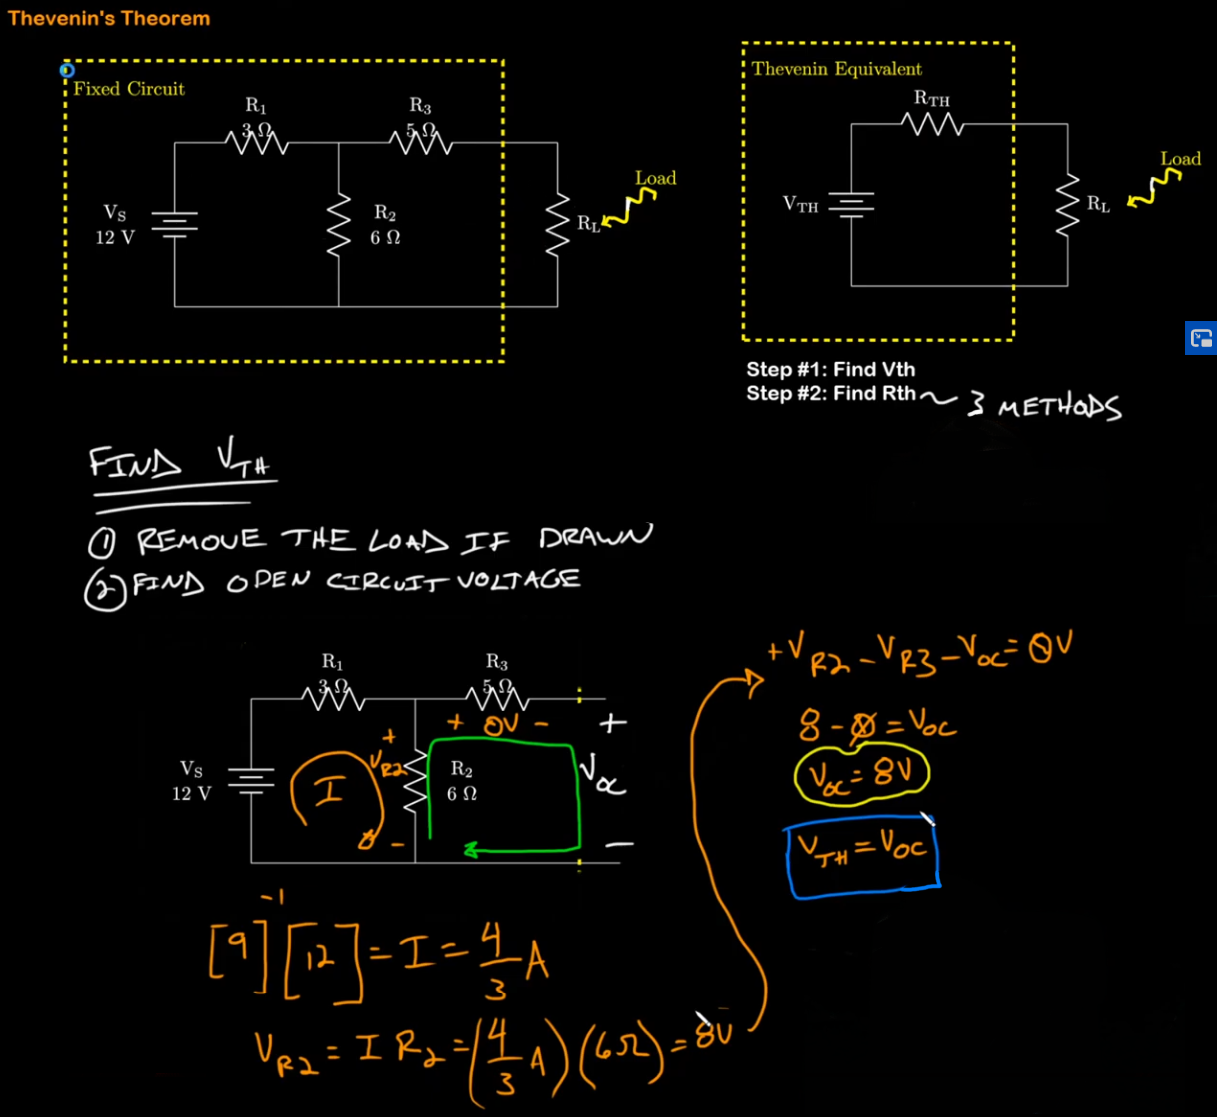 Thevenin's Theorem
Fixed Circuit
R₁
3 Ω
R₃
5 Ω
V_S
12 V
R₂
6 Ω
R_L
Load
Thevenin Equivalent
R_TH
V_TH
R_L
Load
Step #1: Find Vth
Step #2: Find Rth ~ 3 METHODS
FIND V_TH
① REMOVE THE LOAD IF DRAWN
② FIND OPEN CIRCUIT VOLTAGE
R₁
3 Ω
R₃
5 Ω
+ 0V -
+
V_R2
-
I
V_S
12 V
R₂
6 Ω
+
V_OC
-
+V_R2 - V_R3 - V_OC = 0V
8 - 0 = V_OC
V_OC = 8V
V_TH = V_OC
[9]⁻¹ [12] = I = 4/3 A
V_R2 = I R₂ = (4/3 A)(6Ω) = 8V